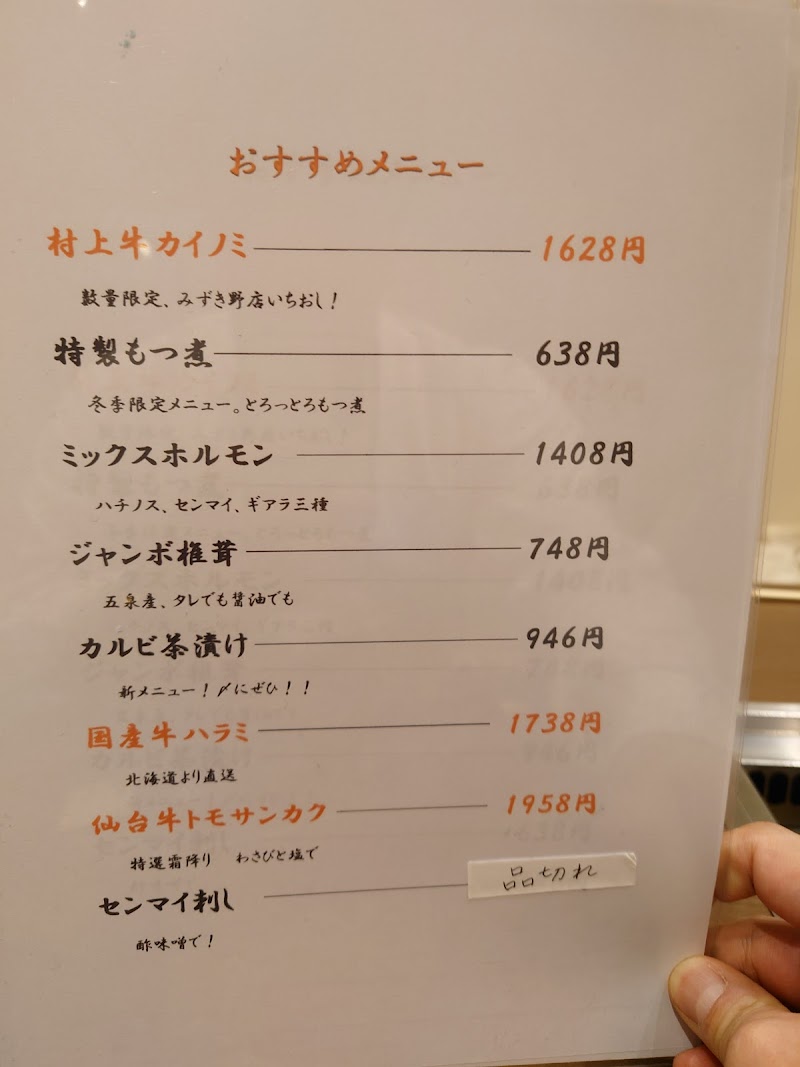 おすすめメニュー
村上牛カイノミ 1628円
数量限定、みずき野店いちおし！
特製もつ煮 638円
冬季限定メニュー。とろっとろもつ煮
ミックスホルモン 1408円
ハチノス、センマイ、ギアラ三種
ジャンボ椎茸 748円
五泉産、タレでも醤油でも
カルビ茶漬け 946円
新メニュー！〆にぜひ！！
国産牛ハラミ 1738円
北海道より直送
仙台牛トモサンカク 1958円
特選霜降り わさびと塩で
センマイ刺し 品切れ
酢味噌で！